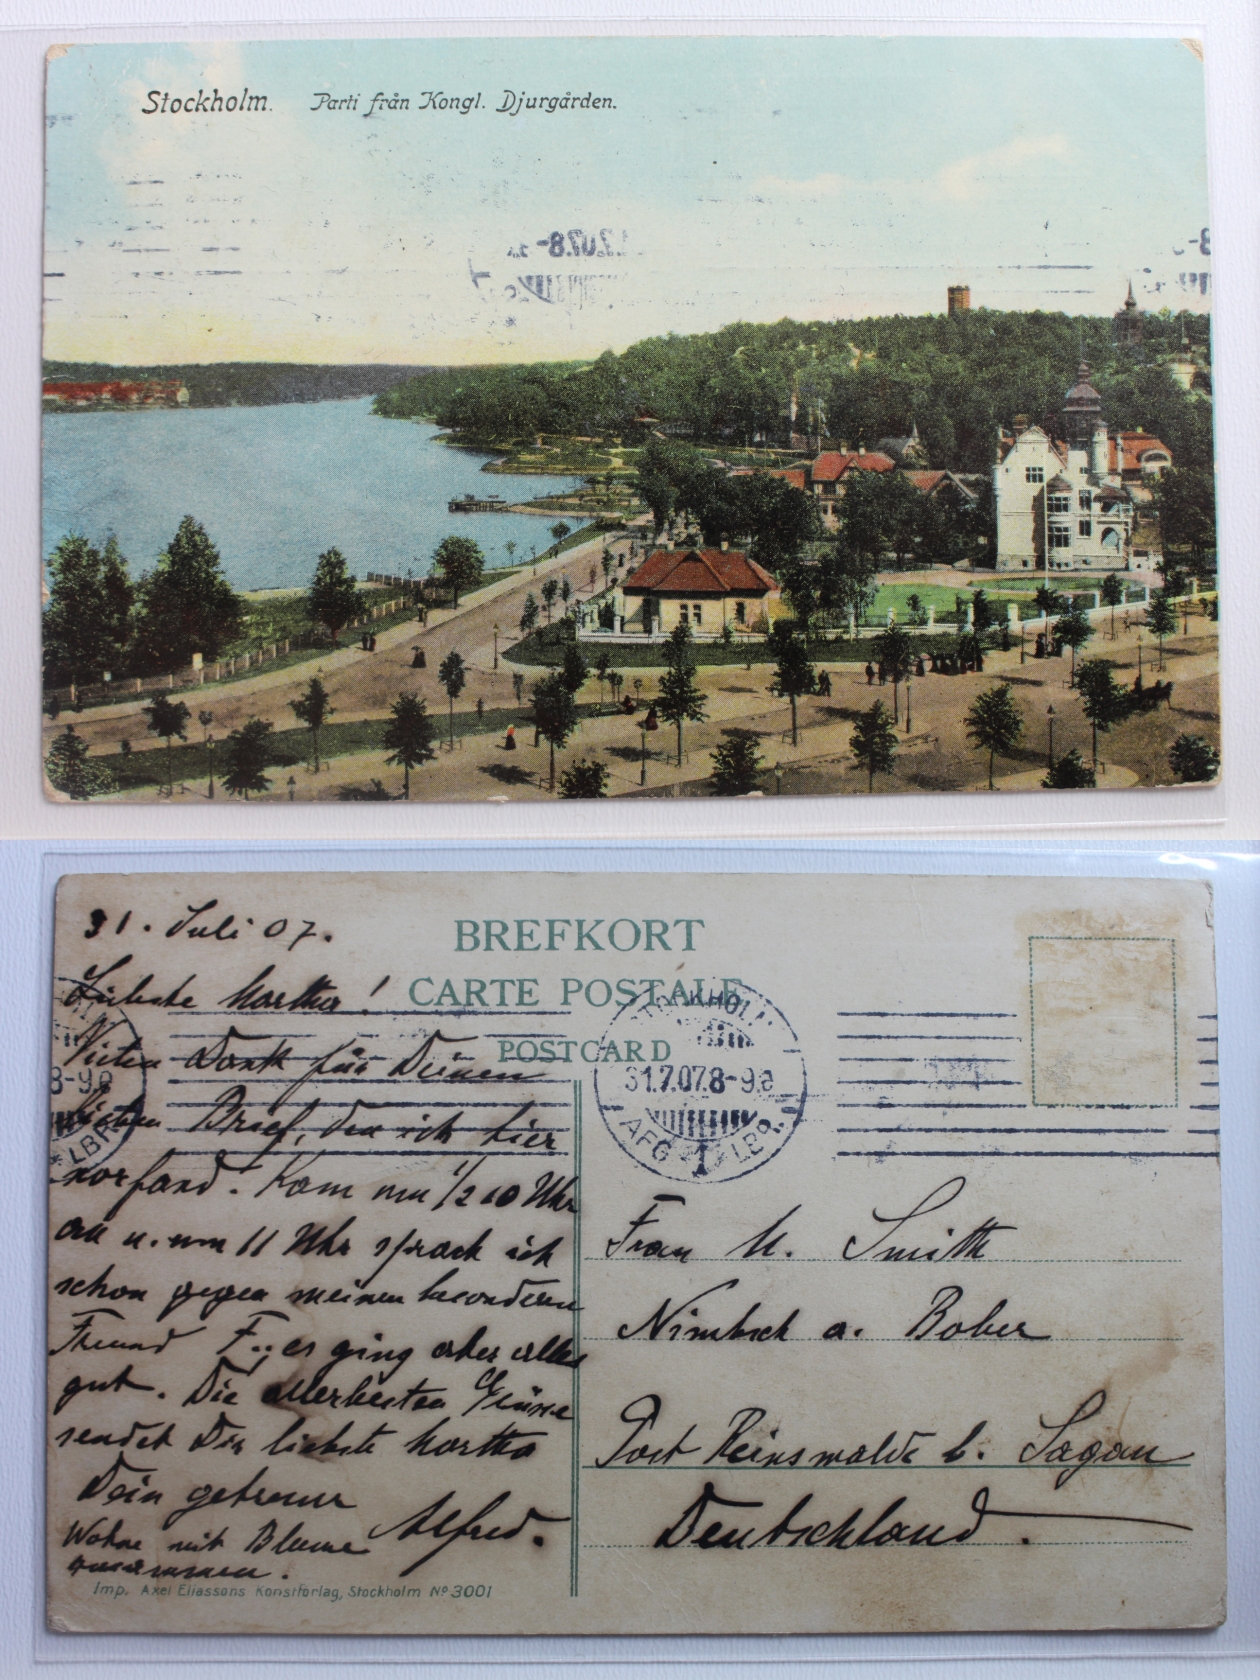 Stockholm. Parti från Kongl. Djurgården.
31. Juli 07.
Liebste Martha!
Vielen Dank für Deinen
lieben Brief, den ich hier
vorfand. Kam um 1/2 10 Uhr
an u. um 11 Uhr sprach ich
schon gegen meinen besonderen
Freund F.. es ging aber alles
gut. Die allerbesten Grüsse
sendet Dir liebste Martha
Dein getreuer
Alfred.
Wohne mit Blume
zusammen.
Imp. Axel Eliassons Konstförlag, Stockholm No 3001
BREFKORT
CARTE POSTALE
POSTCARD
STOCKHOLM
31.7.07.8-9
AFG 1 LBR.
8-9
LBR
Frau M. Smith
Nimbsch a. Bober
Post Reinswalde b. Sagan
Deutschland.